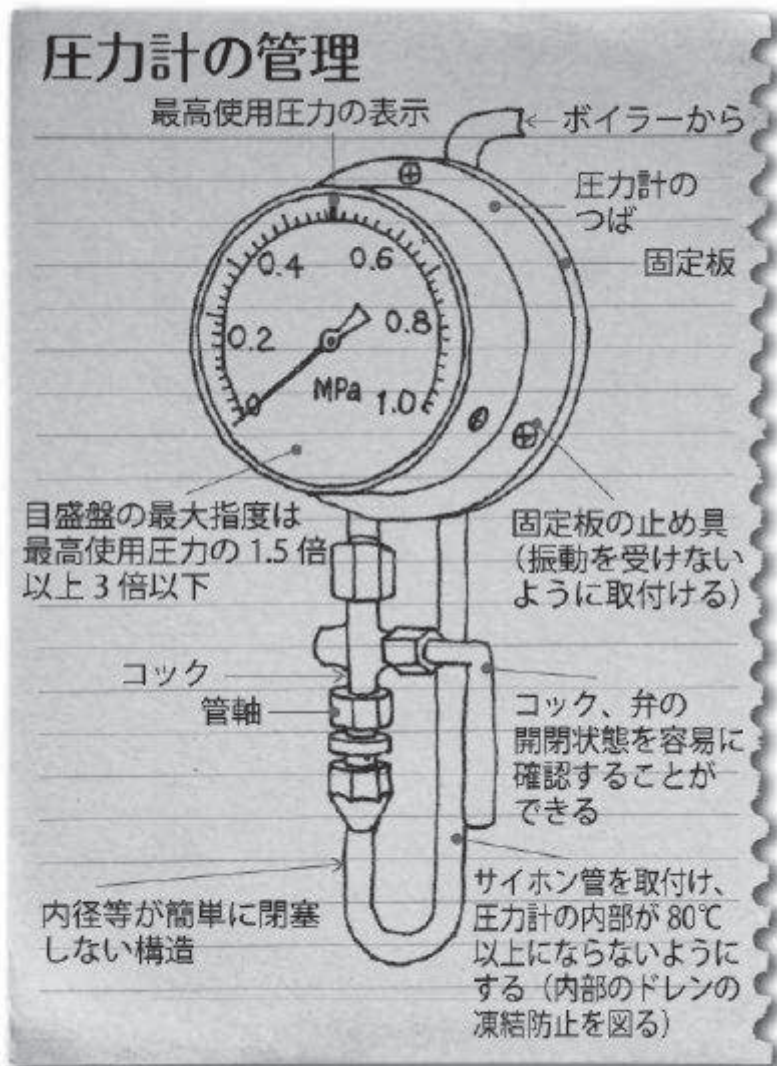 圧力計の管理
最高使用圧力の表示
ボイラーから
圧力計の
つば
固定板
0.4
0.6
0.2
0.8
0
MPa
1.0
目盛盤の最大指度は
最高使用圧力の 1.5 倍
以上 3 倍以下
固定板の止め具
(振動を受けない
ように取付ける)
コック
管軸
コック、弁の
開閉状態を容易に
確認することが
できる
内径等が簡単に閉塞
しない構造
サイホン管を取付け、
圧力計の内部が 80℃
以上にならないように
する（内部のドレンの
凍結防止を図る）